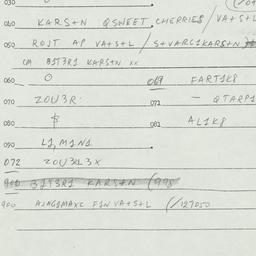 030
040 KARS+N QSWEET CHERRIES / VA+S+L
050 ROJT AP VA+S+L / S+VARC1KARS+N
CM B1T3R1 KARS+N XX
060 O 069 FART1K8
070 ZOU3R 071 - QTARP1
080 081 AL1K8
090 L1, M1N1
072 ZOU3L3X
900 B1T3R1 KARS+N (998
900 F1N VA+S+L (/127050